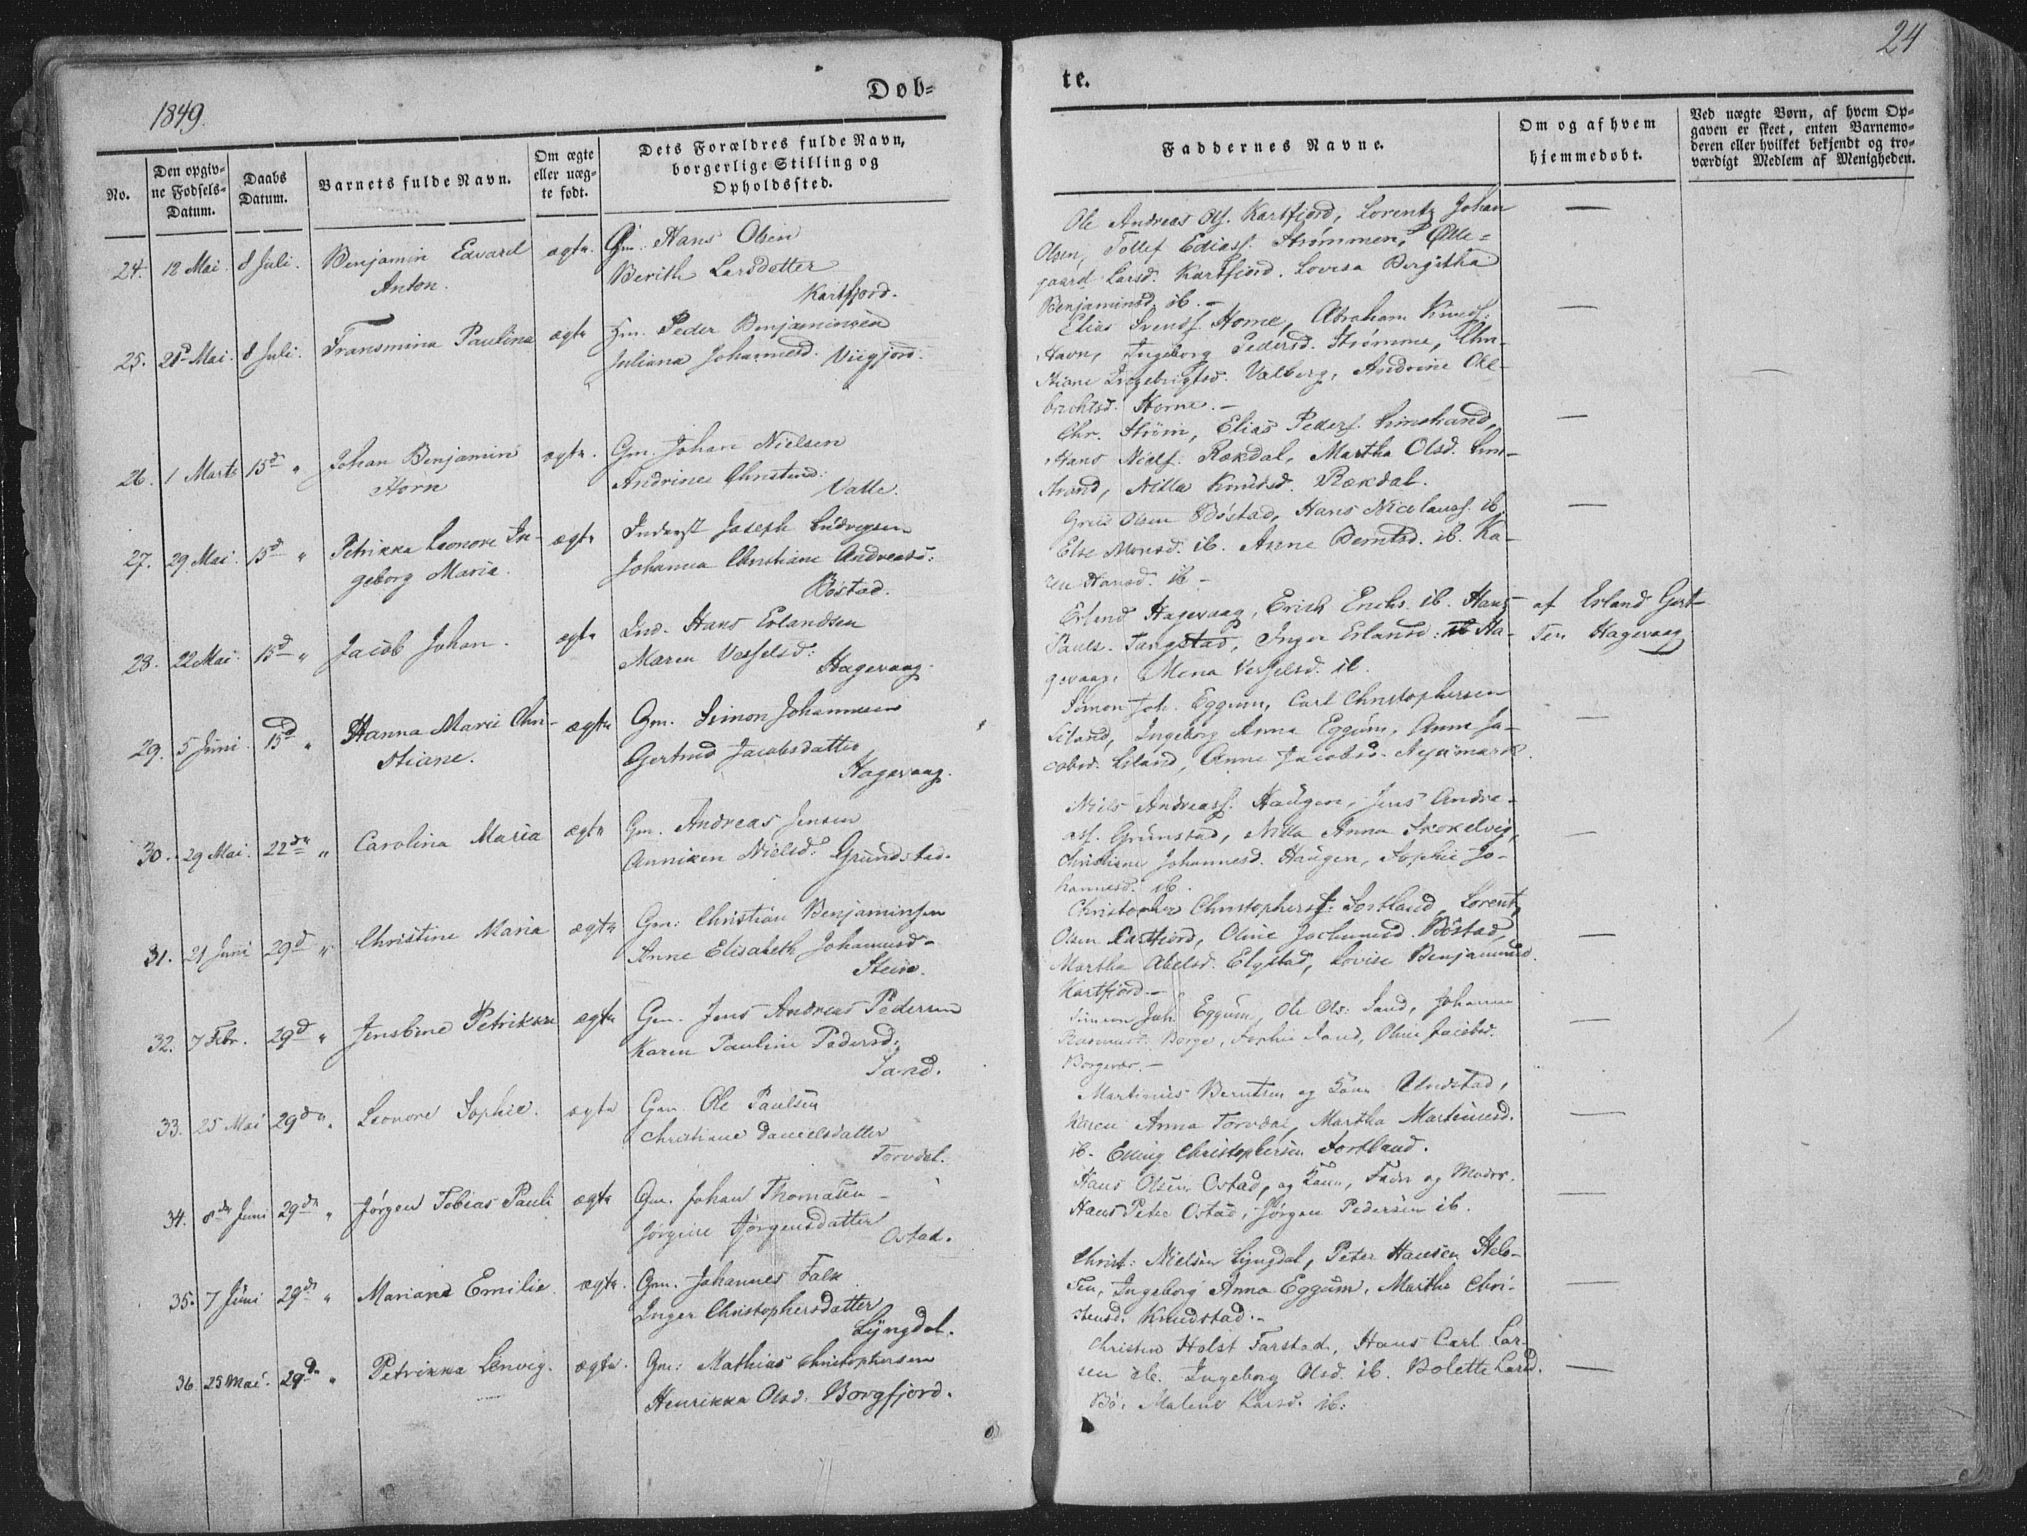 1849.
Døb=
te.
24
No.
Den opgiv-
ne Fødsels-
Datum.
Daabs
Datum.
Barnets fulde Navn.
Om ægte
eller uæg-
te født.
Dets Forældres fulde Navn,
borgerlige Stilling og
Opholdssted.
Faddernes Navne.
Om og af hvem
hjemmedøbt.
Ved uægte Børn, af hvem Op-
gaven er skeet, enten Barnemo-
deren eller hvilket bekjendt og tro-
værdigt Medlem af Menigheden.
24. 12 Mai. 8 Juli. Benjamin Edvard ægte. Gm. Hans Olsen
Anton. Berith Larsdotter
Kartfjord.
Ole Andreas Ols. Kartfjord, Lorentz Johan
Olsen, Tollef Ediass. Strømmen, Olle=
gaard Larsd. Kartfjord. Lovisa Birgitha
Benjaminsd. ib. —
25. 21d Mai. 8 Juli. Fransmina Paulina ægte Gm. Peder Benjaminsen
Juliana Johannesd. Viigjord.
Elias Svends. Horne, Abraham Knuds.
Havn, Ingeborg Pedersd. Strømme, Chri-
stiane Ingebrigtsd. Valberg, Andrine Ole-
brichtsd. Horne. —
26. 1 Marts 15d " Johan Benjamin ægte. Gm. Johan Nielsen
Horn Andrine Christend.
Valle.
Chr. Strøm, Elias Peders. Limstrand,
Hans Niels. Rækdal, Martha Olsd. Lim-
strand, Nilla Knudsd. Rækdal.
27. 29 Mai. 15d " Petrikka Leonore In- ægte Inderst Joseph Ludvigsen
geborg Maria. Johanna Christiane Andreasd:
Bøstad.
Olsen Bøstad, Hans Nicolaus. ib.
Else Monsd. ib. Anne Berntsd. ib. Ka-
ren Hansd. ib —
28. 22 Mai 15d " Jacob Johan. ægte Ind. Hans Erlandsen
Maren Vesselsd:
Hagevaag.
Erlend Hagevaag, Erich Erichs. ib. Hans
Pauls. Tangstad, Inger Erlandsd: ib Ha-
gevaag, Mena Vesselsd. ib.
af Erland Gert-
sen Hagevaag
29. 5 Juni. 15d " Hanna Marie Chri- ægte Gm. Simon Johannesen
stiane. Gertrud Jacobsdatter
Hagevaag.
Simon Joh. Eggum, Carl Christophersen
Liland, Ingeborg Anna Eggum, Anne Ja-
cobsd. Liland, Anne Jacobsd.
30. 29 Mai. 22de " Carolina Maria ægte Gm. Andreas Jensen
Anniken Nielsd. Grundstad.
Niels Andreass. Haugen, Jens Andre-
ass. Grunstad, Nilla Anna Skokelvig,
Christiane Johannesd. Haugen, Sophie Jo-
hannesd. ib.
31. 21 Juni 29d " Christine Maria ægte Gm: Christian Benjaminsen
Anne Elisabeth Johannesd-
Steine.
Christopher Christophers: Sortland, Lorentz
Olsen Cartfjord, Oline Jochumsd Bøstad,
Martha Abelsd. Elgstad, Lovise Benjaminsd.
Kartfjord —
32. 7 Febr. 29d " Jensbine Petrikka ægte Gm. Jens Andreas Pedersen
Karen Pauline Pedersd.
Sand.
Simon Joh. Eggum, Ole Ols: Sand, Johanna
Rasmusd. Borge, Sophie Sand, Oline Jacobsd.
Borgevær. —
33. 25 Mai 29de " Leonore Sophie. ægte Gm. Ole Paulsen
Christiane Danielsdatter
Torvdal.
Martinus Berntsen og Kone Unstad,
Karen Anna Torvdal, Martha Martinusd.
ib. Elling Christophersen Sortland.
34. 8de Juni 29de " Jørgen Tobias Pauli ægte Gm. Johan Thomasen —
Jørgine Jørgensdatter
Ostad.
Hans Olsen Ostad, og Kone, Fader og Moder.
Hans Peter Ostad, Jørgen Pedersen ib.
35. 7 Juni 29de " Mariane Emilie ægte. Gm. Johannes Falk
Inger Christophersdatter
Lyngdal.
Christ: Nielsen Lyngdal, Peter Hansen Hol-
sen, Ingeborg Anna Eggum, Martha Chri-
stensd. Knudstad. —
36. 25 Mai. 29de " Petrikka Lenvig. ægte. Gm: Mathias Christophersen
Henrikka Olsd. Borgfjord.
Christen Holst Farstad, Hans Carl Lar-
sen ib. Ingeborg Olsd. ib. Bolette Larsd.
Bø. Malene Larsd. ib: